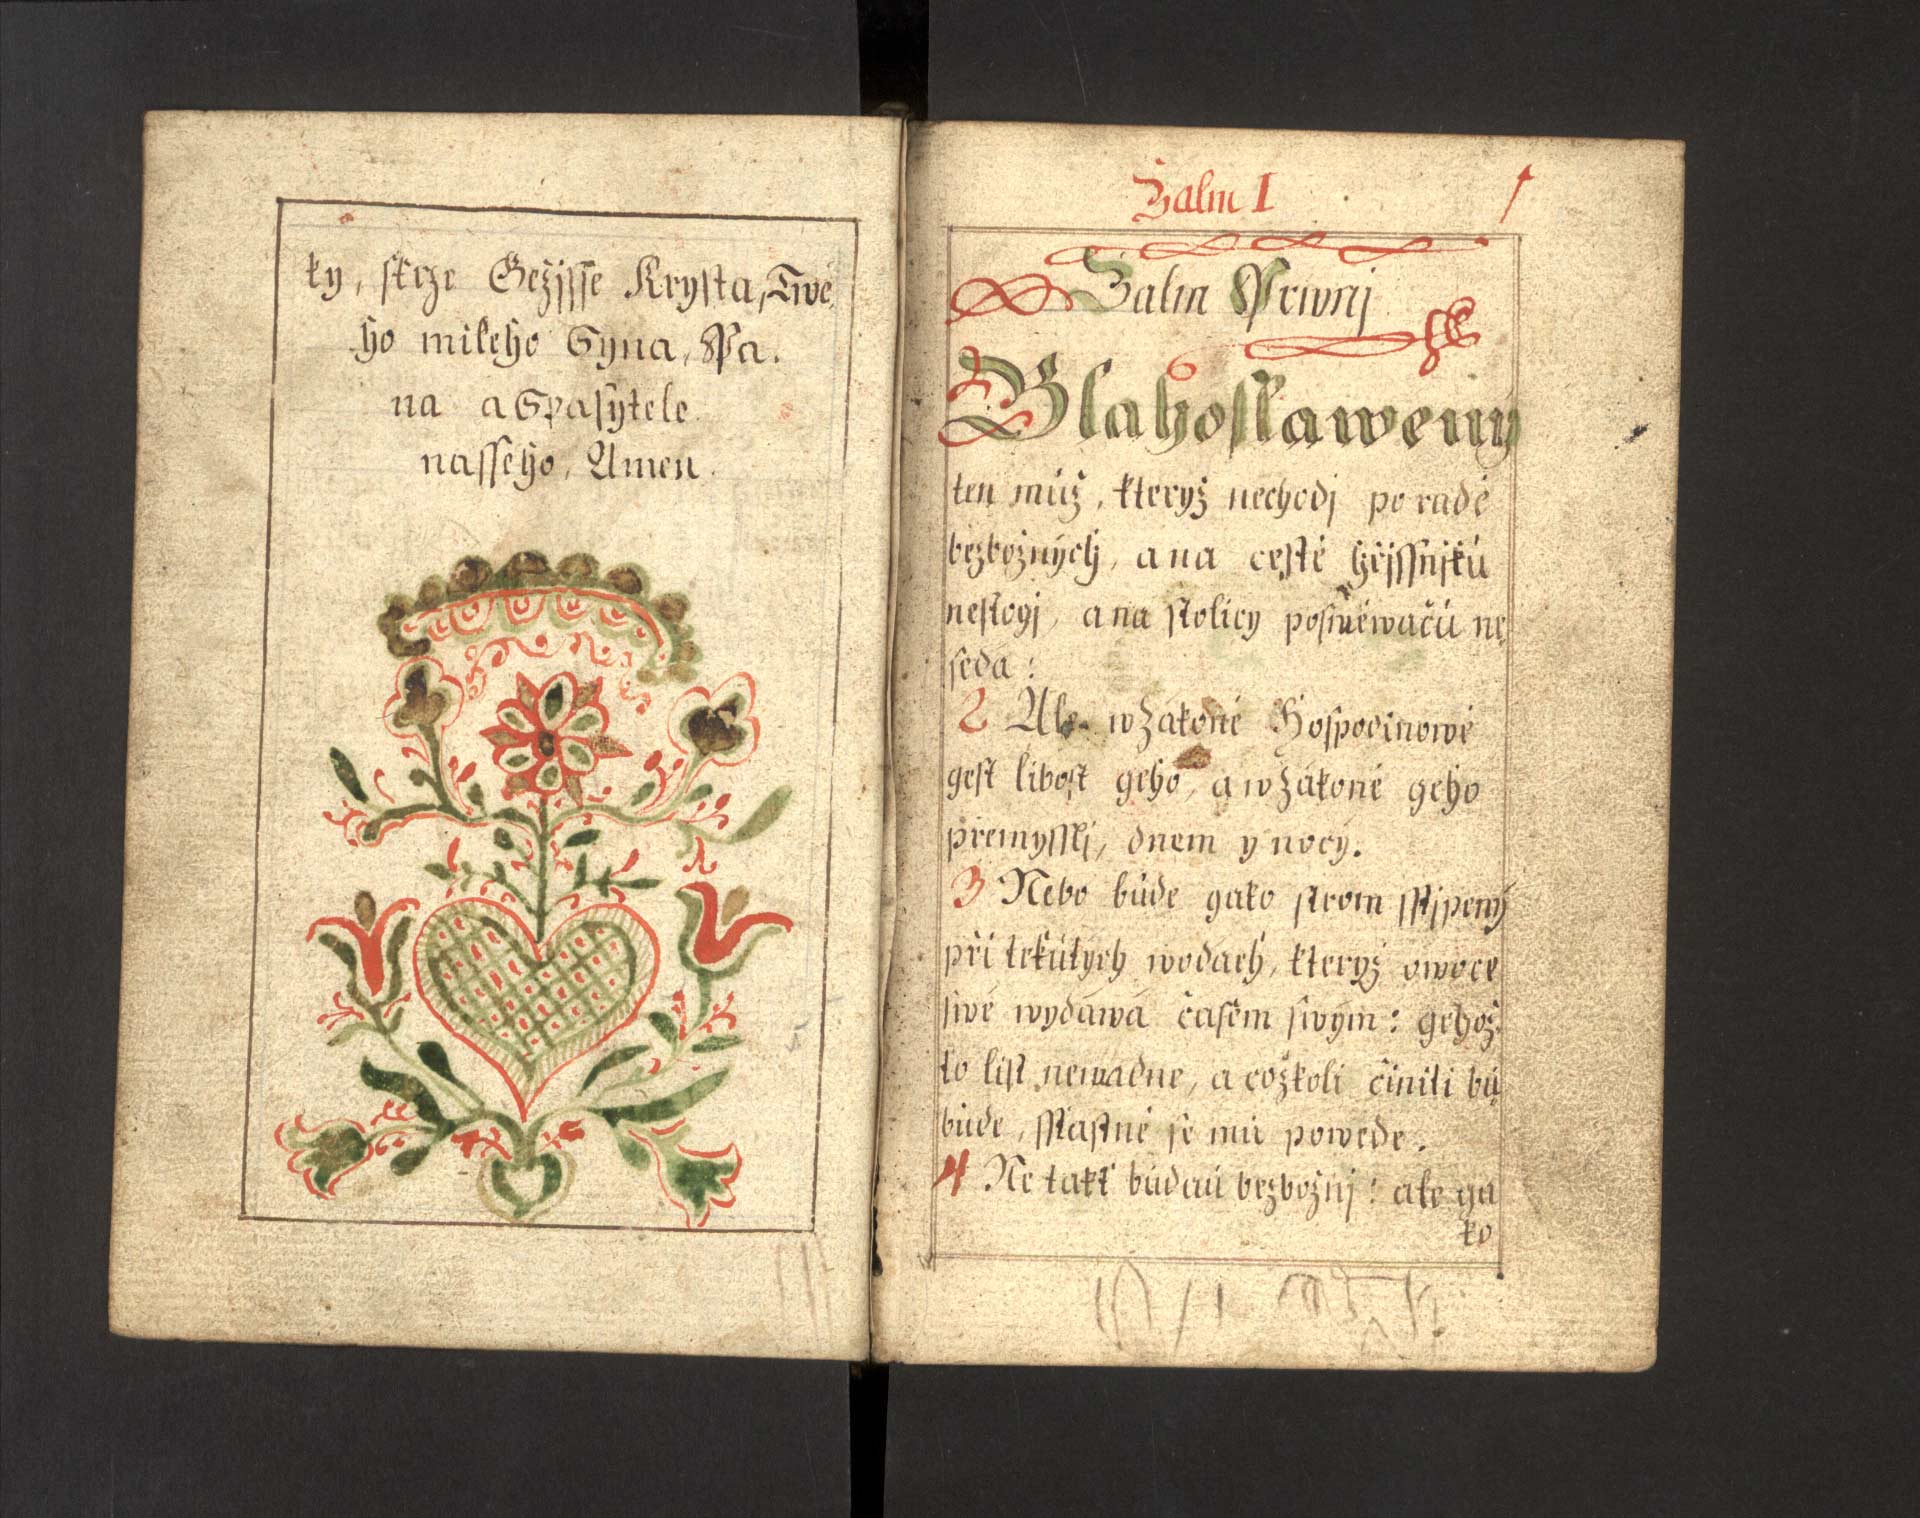 ky, skrze Gežjsse Krysta, Twé
ho milého Syna, Pa.
na a Spasytele
nasseho, Amen.
Žalm I
1
Žalm Prwnj
Blahoslawený
ten múž, kteryž nechodj po radě
bezbožných, a na cestě hřjssnjků
nestogj, a na stolicy posměwačů ne,
seda:
2 Ale w Zakoně Hospodinowě
gest libost geho, a w Zákoně geho
přemysslj, dnem y nocy.
3 Nebo bude gako strom sstjpený
při tekutých wodach, kteryž owoce
swé wydáwá časem swým: gehož,
to list newadne, a cožkoli činiti bu
bude, sstastně se mu powede.
4 Ne takť budau bezbožnj: ale ga
ko